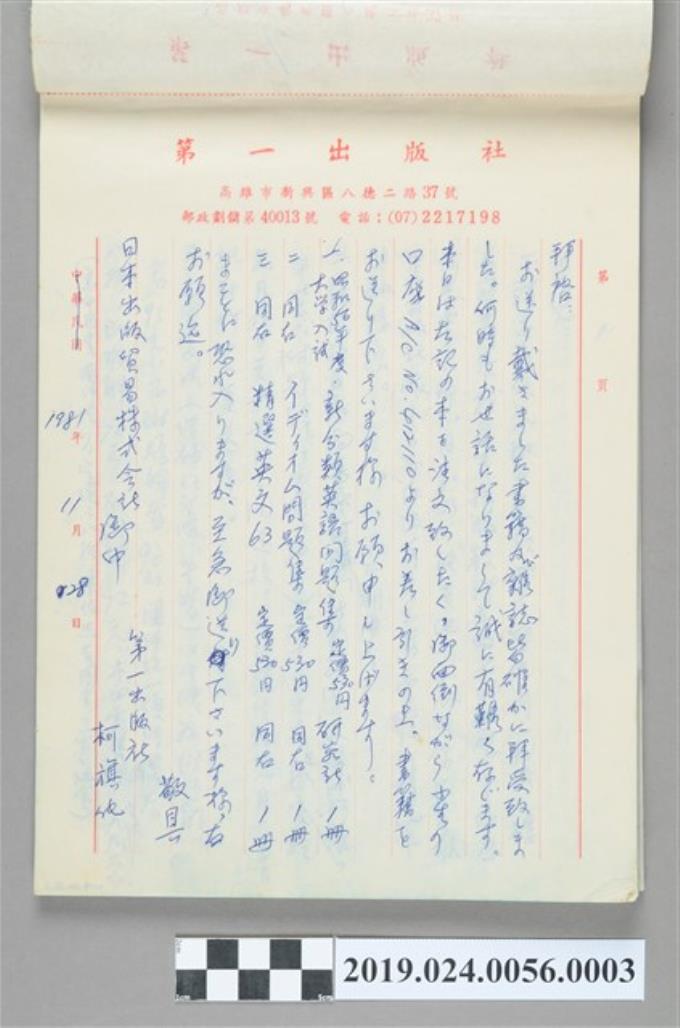 第一出版社
高雄市新興區八德二路37號
郵政劃儲第40013號 電話：(07)2217198
第 頁
拜啓：
お送り戴きました書籍及雜誌皆確かに拜受致しま
した。何時もお世話になりまして誠に有難く存じます。
本日は左記の本を注文致したく。御面倒ながら 小生の
口座 より お差し引きの上、書籍を
お送り下さいます様 お願申し上げます。
一、昭和 年度・新分類英語問題集 定價530円 研究社 1冊
大学入試
二 同右 イディオム問題集 定價530円 同右 1冊
三 同右 精選英文63 定價530円 同右 1冊
まことに恐れ入りますが、至急御送り下さいます様、右
お願迄。
敬具
第一出版社
柯旗化
日本出版貿易株式会社 御中
中華民國 1981年 11月 28日
2019.024.0056.0003